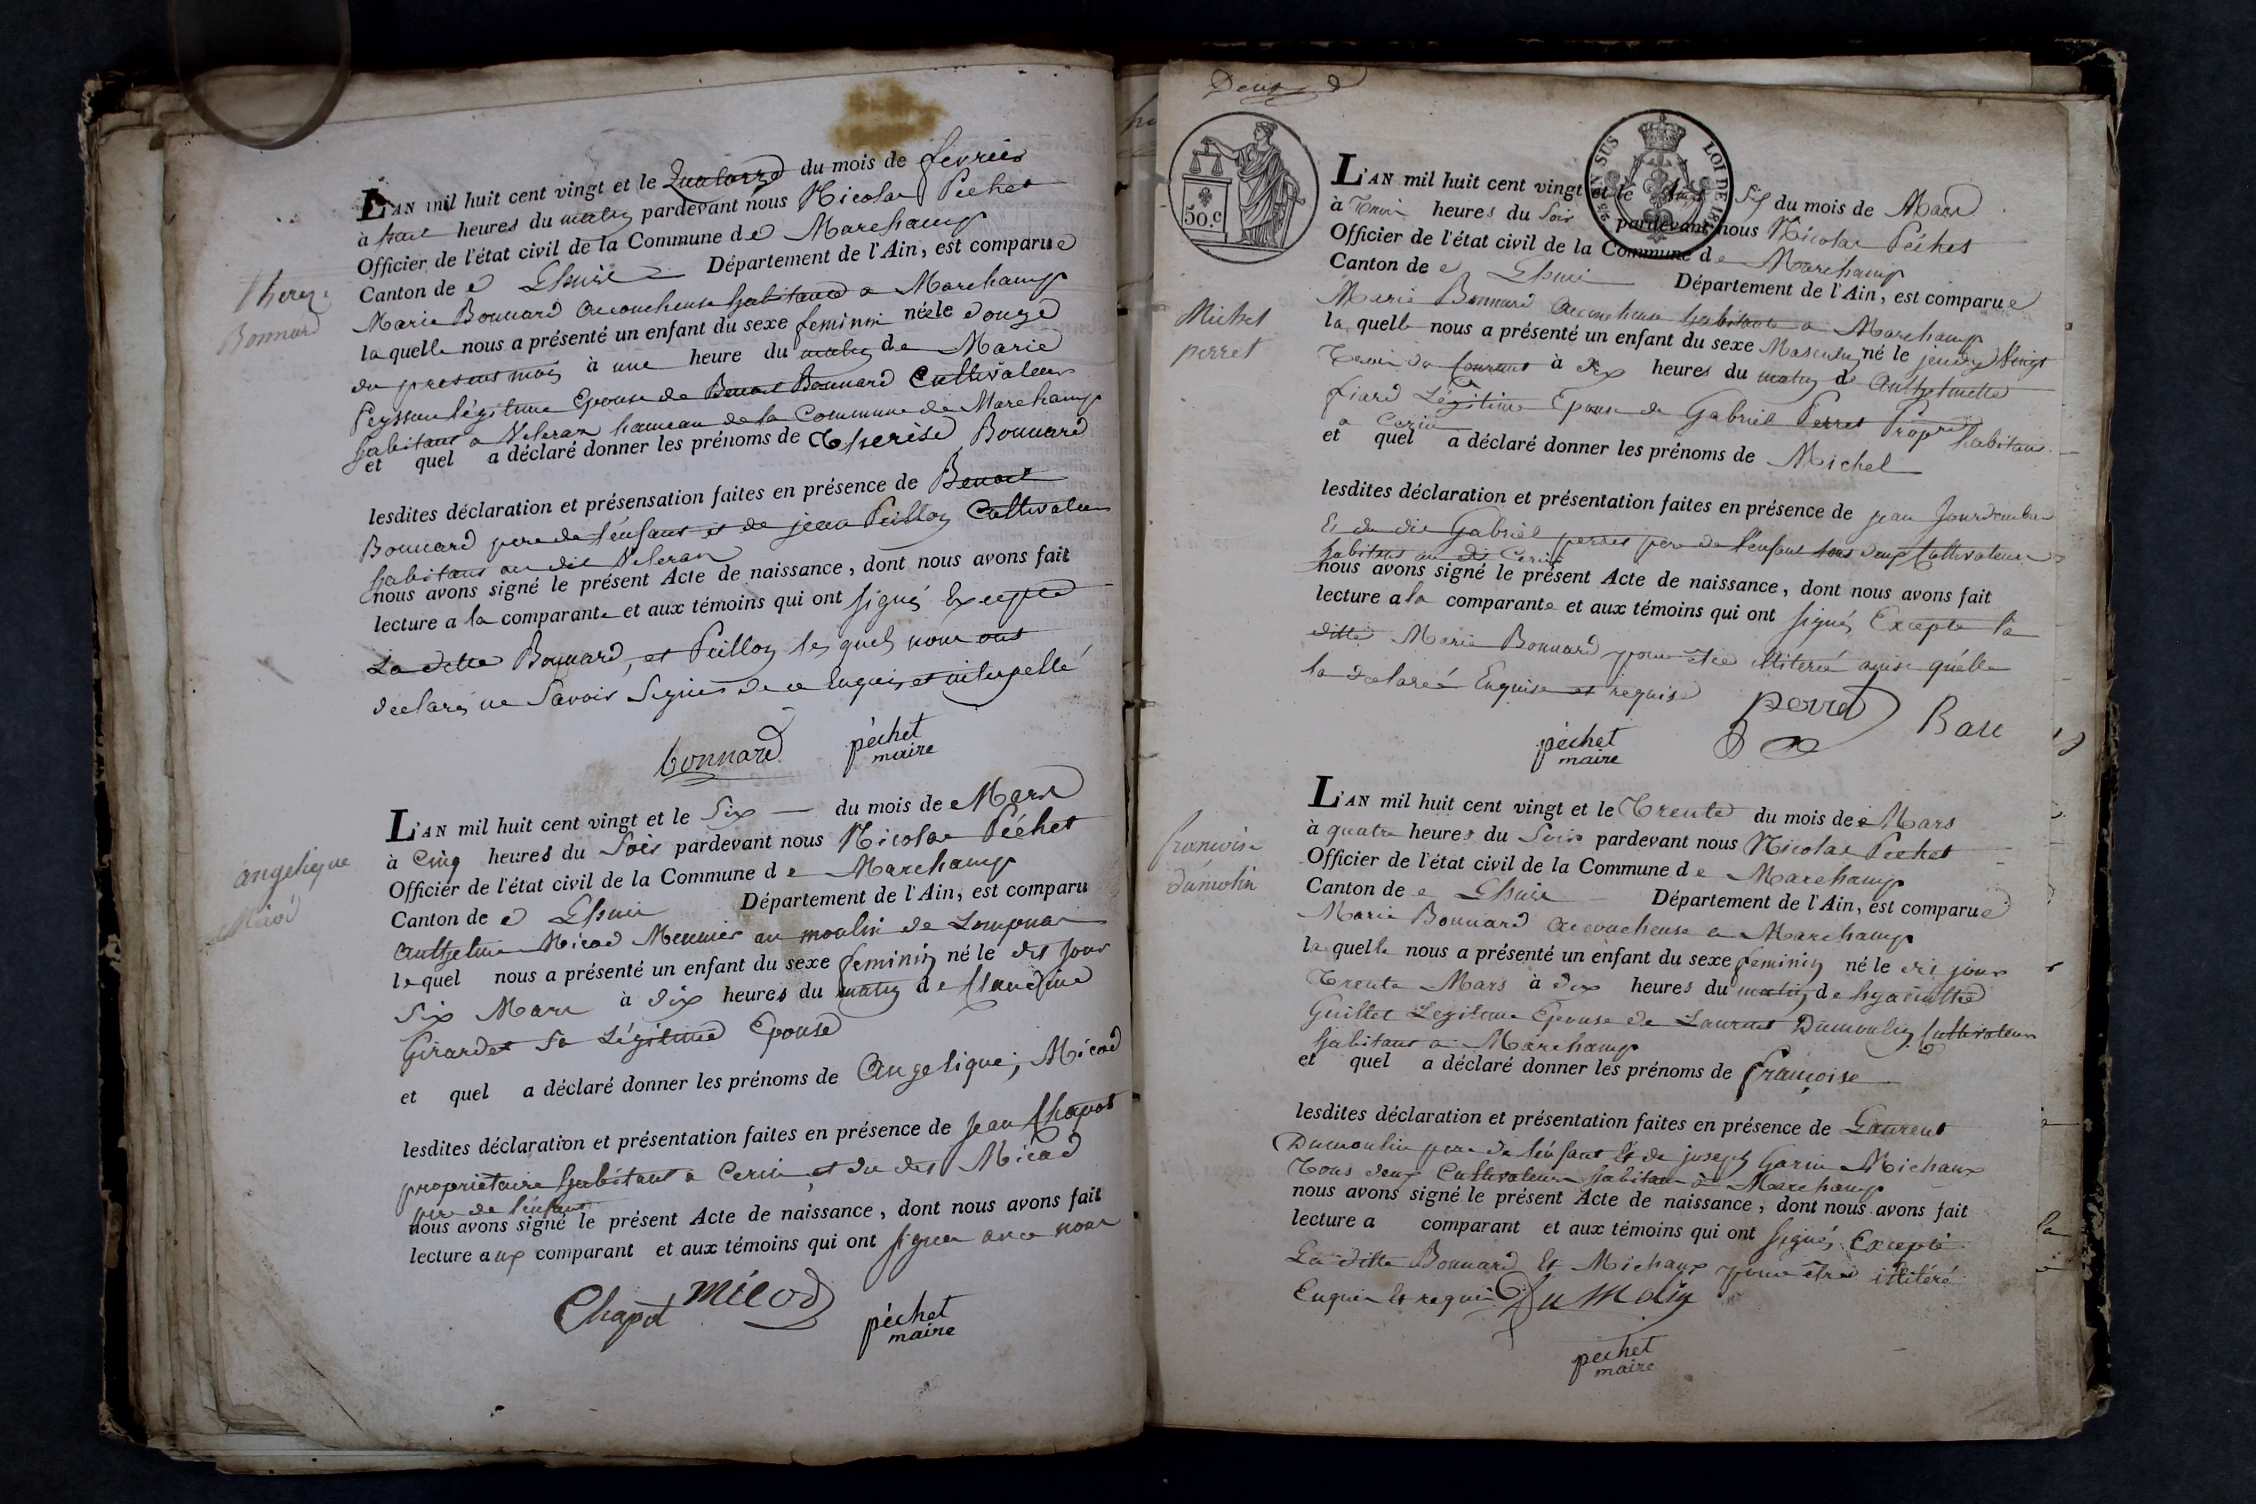 Thereze
Bonnard
L'AN mil huit cent vingt et le Quatorze du mois de février
à huit heures du matin pardevant nous Nicolas Péchet
Officier de l'état civil de la Commune de Marchamp
Canton de Lhuis Département de l'Ain, est comparue
Marie Bonnard accoucheuse habitante a Marchamp
la quelle nous a présenté un enfant du sexe feminin née le douze
du present mois à une heure du matin de Marie
Peysson légitime Epouse de Benoit Bonnard Cultivateur
habitant a Veleran hameau de la Commune de Marchamp
et quel a déclaré donner les prénoms de Therése Bonnard
lesdites déclaration et présensation faites en présence de Benoit
Bonnard pere de l'énfant et de jean Peillon Cultivateur
habitans au dit Veleran
nous avons signé le présent Acte de naissance, dont nous avons fait
lecture a la comparante et aux témoins qui ont signé Excepté
La ditte Bonnard, et Peillon les quels nous ont
declaré ne Savoir Signer de ce Enquis et interpellé
bonnard péchet
maire
angelique
Micod
L'AN mil huit cent vingt et le Six du mois de Mars
à Cinq heures du Soir pardevant nous Nicolas Péchet
Officier de l'état civil de la Commune de Marchamp
Canton de Lhuis Département de l'Ain, est comparu
Anthelme Micod Meunier au moulin de Lompnas
lequel nous a présenté un enfant du sexe feminin né le dit jour
Six Mars à dix heures du matin de Claudine
Girardet Sa Légitime Epouse
et quel a déclaré donner les prénoms de Angelique, Micod
lesdites déclaration et présentation faites en présence de Jean Chapot
propriétaire habitant a Cerin et du dit Micod
pere de l'énfant
nous avons signé le présent Acte de naissance, dont nous avons fait
lecture aux comparant et aux témoins qui ont signer avec nous
Chapot Micod péchet
maire
Deux
50 c
EN SUS
LOI DE 1816
Michel
perret
L'AN mil huit cent vingt et le du mois de Mars
à Trois heures du Soir pardevant nous Nicolas Péchet
Officier de l'état civil de la Commune de Marchamp
Canton de Lhuis Département de l'Ain, est comparue
Marie Bonnard accoucheuse habitante a Marchamp
la quelle nous a présenté un enfant du sexe Masculin né le jeudy Vingt
Trois du Courant à dix heures du matin de Anthelmette
fiard Légitime Epouse de Gabriel Perret Propre habitans
a Cerin
et quel a déclaré donner les prénoms de Michel
lesdites déclaration et présentation faites en présence de jean
Et du dit Gabriel perret pere de l'énfant tous deux Cultivateurs
habitans au dit Cerin
nous avons signé le présent Acte de naissance, dont nous avons fait
lecture a la comparante et aux témoins qui ont Signés Excepte la
ditte Marie Bonnard pour etre illiteré ainsi qu'elle
la declaré Enquise et requise
péchet
maire
perret
françoise
dumolin
L'AN mil huit cent vingt et le Trente du mois de Mars
à quatre heures du Soir pardevant nous Nicolas Péchet
Officier de l'état civil de la Commune de Marchamp
Canton de Lhuis Département de l'Ain, est comparue
Marie Bonnard accoucheuse a Marchamp
la quelle nous a présenté un enfant du sexe feminin né le dit jour
Trente Mars à dix heures du matin de hyacinthe
Guillet Legitime Epouse de Laurent Dumoulin Cultivateur
habitant a Marchamp
et quel a déclaré donner les prénoms de françoise
lesdites déclaration et présentation faites en présence de Laurent
Dumoulin pere de l'énfant Et de joseph Garin Michaux
Tous deux Cultivateurs habitans à Marchamp
nous avons signé le présent Acte de naissance, dont nous avons fait
lecture a comparant et aux témoins qui ont Signés Excepté
La ditte Bonnard Et Michaux pour etre illitéré
Enquis Et requis Du Molin
péchet
maire